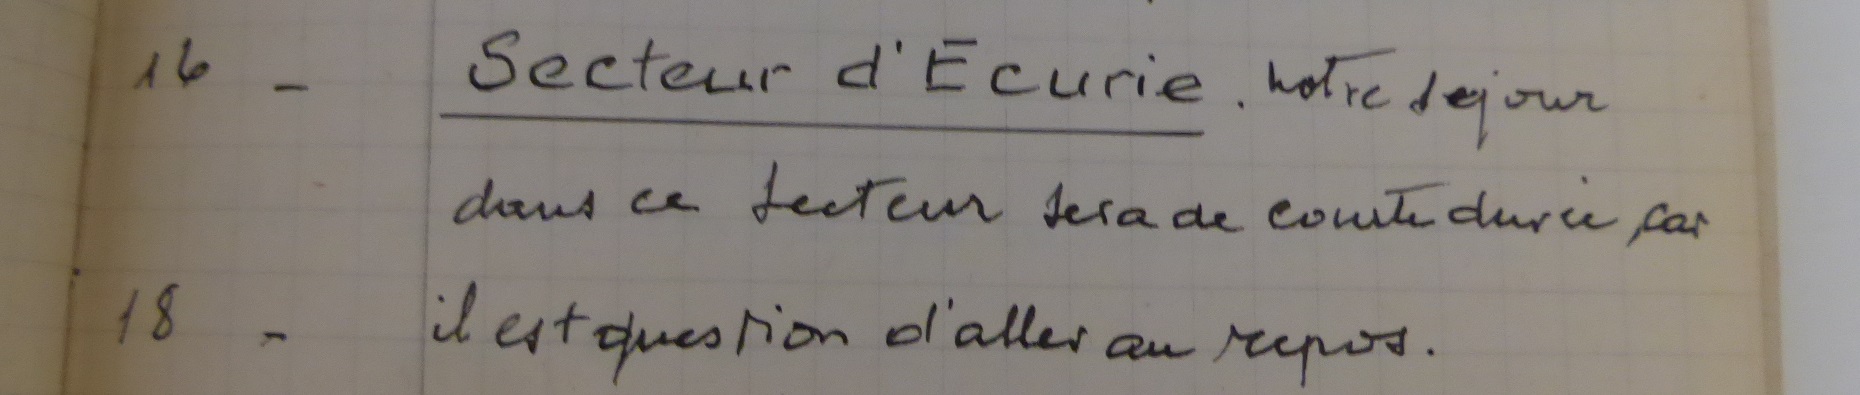 16 - Secteur d'Ecurie. notre sejour
dans ce secteur sera de courte durée, car
18 - il est question d'aller au repos.